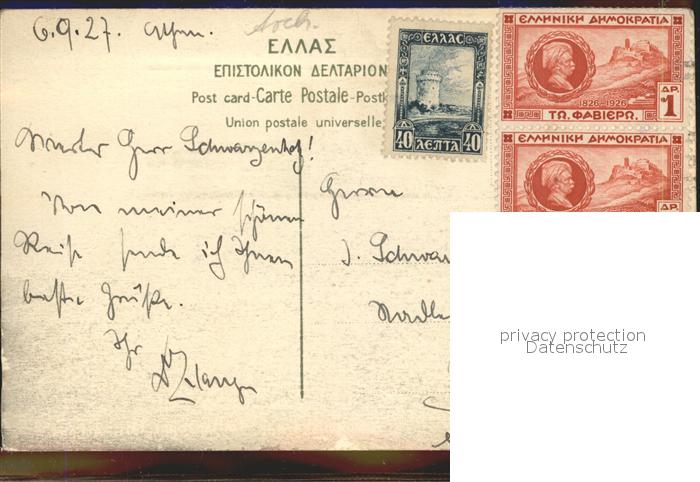 6.9.27. Athen.
ΕΛΛΑΣ
ΕΠΙΣΤΟΛΙΚΟΝ ΔΕΛΤΑΡΙΟΝ
Post card-Carte Postale-Postk
Union postale universelle
ΕΛΛΑΣ
40 ΛΕΠΤΑ 40
ΕΛΛΗΝΙΚΗ ΔΗΜΟΚΡΑΤΙΑ
1826-1926
ΔΡ. 1
ΤΩ. ΦΑΒΙΕΡΩ.
ΕΛΛΗΝΙΚΗ ΔΗΜΟΚΡΑΤΙΑ
ΔΡ.
Herr Schwarzenhof!
Von meiner schönen
Reise sende ich Ihnen
beste Grüße.
Ihr
Herrn
J. Schwar
privacy protection
Datenschutz